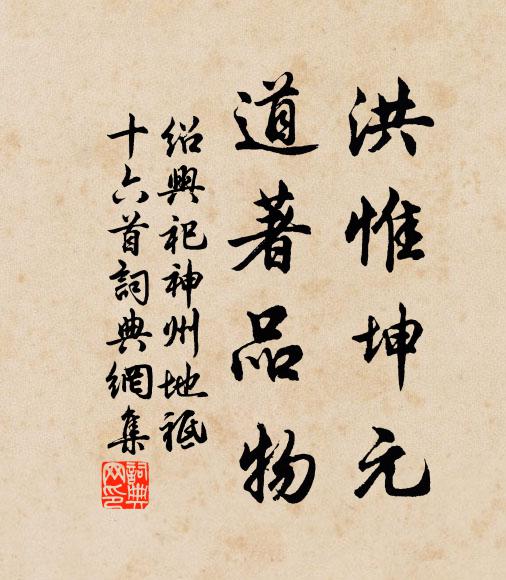 洪惟坤元
道著品物
紹興祀神州地祇
十六首詞典網集
詞典網印